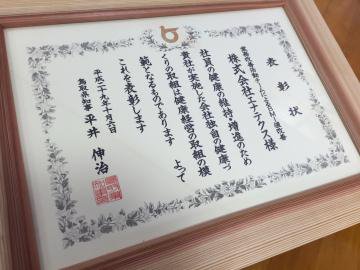 表彰状
株式会社エナテクス様
社員の健康の維持・増進のため
貴社が実施した会社独自の健康づ
くりの取組は健康経営の取組の模
範となるものであります よって
これを表彰します
平成二十九年十月六日
鳥取県知事 平井伸治